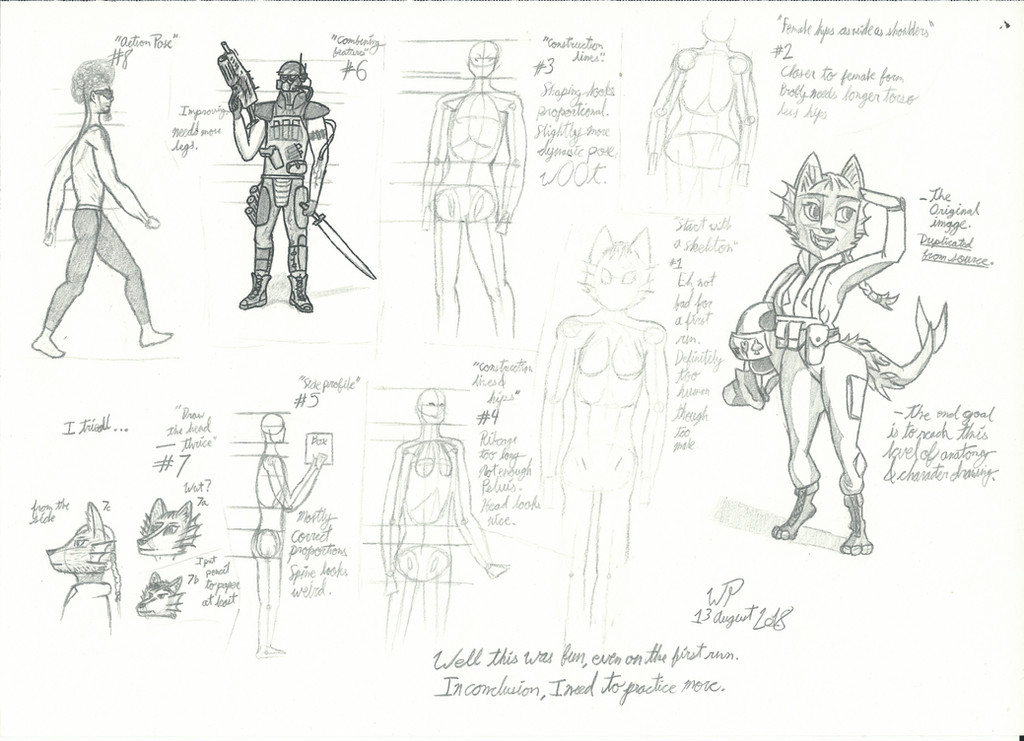 "Action Pose"
#8
Improving,
needs more
legs.
"Combining
features"
#6
"construction
lines"
#3
Shaping looks
proportional.
Slightly more
dynamic pose.
w00t.
"Female hips as wide as shoulders"
#2
Closer to female form
Body needs longer torso
less hips
- The
Original
image.
Duplicated
from source.
"Start with
a skeleton"
#1
Eh, not
bad for
a first
run.
Definitely
too
human
though
too
male
- The end goal
is to reach this
level of anatomy
& character drawing.
I tried...
"Draw
the head
- thrice"
#7
from the
side
7c
Wut?
7a
7b
I put
pencil
to paper
at least
"Side profile"
#5
Box
Mostly
correct
proportions
Spine looks
weird.
"Construction
lines &
hips"
#4
Ribcage
too long
Not enough
Pelvis.
Head looks
nice.
WP
13 August 2018
Well this was fun, even on the first run.
In conclusion, I need to practice more.